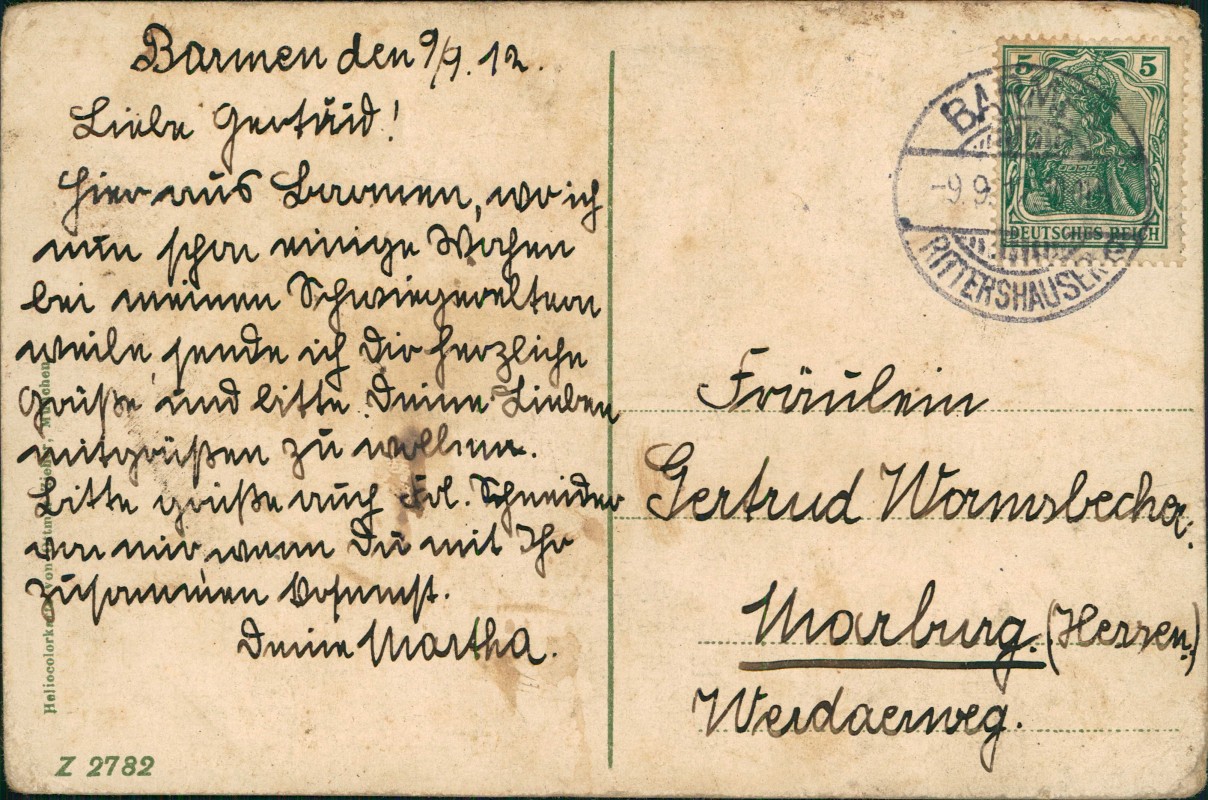 Barmen den 9/9. 12.
Liebe Gertrud!
Hier aus Barmen, wo ich
nun schon einige Wochen
bei meinen Schwiegereltern
weile, sende ich Dir herzliche
Grüße und bitte Deine Lieben
mitgrüßen zu wollen.
Bitte grüße auch Frl. Schneider
von mir wenn Du mit Ihr
zusammen kommst.
Deine Martha.
5 5
DEUTSCHES REICH
BARMEN
-9.9.
RITTERSHAUSEN
Fräulein
Gertrud Wormsbecher.
Marburg. (Hessen.)
Werdaerweg.
Heliocolorkarte von Ottmar Zieher, München
Z 2782